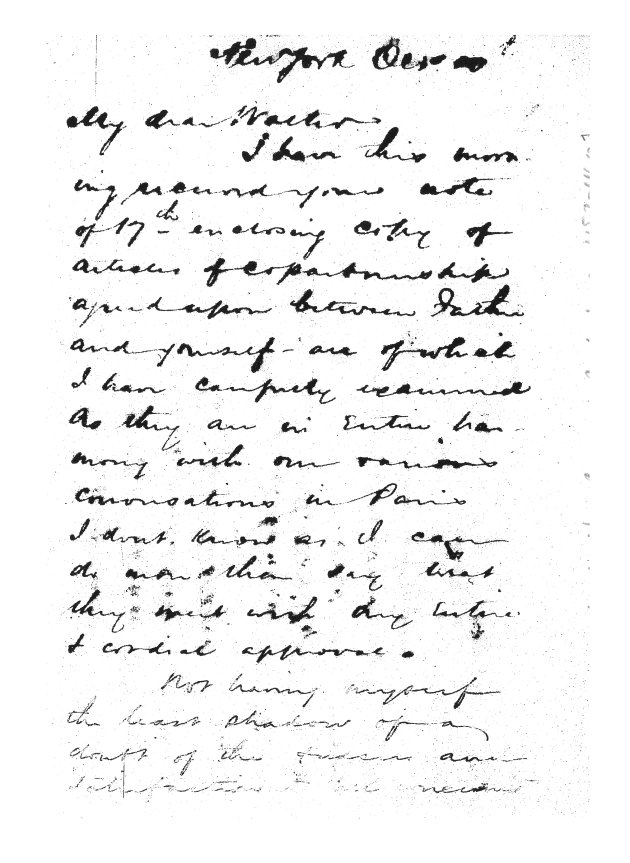 New York Oct
My dear Walter
I have this morn-
ing received your note
of 17th enclosing copy of
articles of copartnership
agreed upon between Father
and yourself - all of which
I have carefully examined
As they are in Entire har-
mony with our various
conversations in Paris
I dont know as I can
do more than say that
they meet with my Entire
& cordial approval.
Not having myself
the least shadow of a
doubt of the success and
satisfaction to